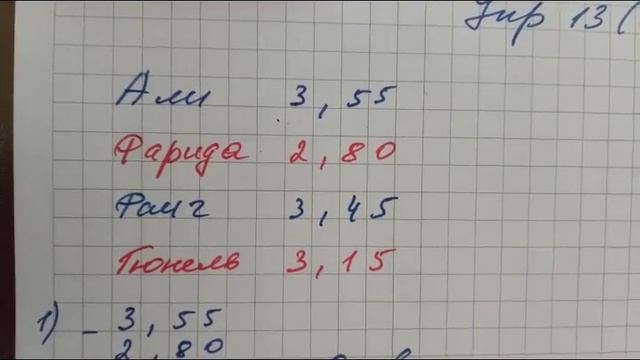 Упр 13(
Али 3,55
Фарида 2,80
Рамг 3,45
Тюнель 3,15
1) - 3,55
2,80